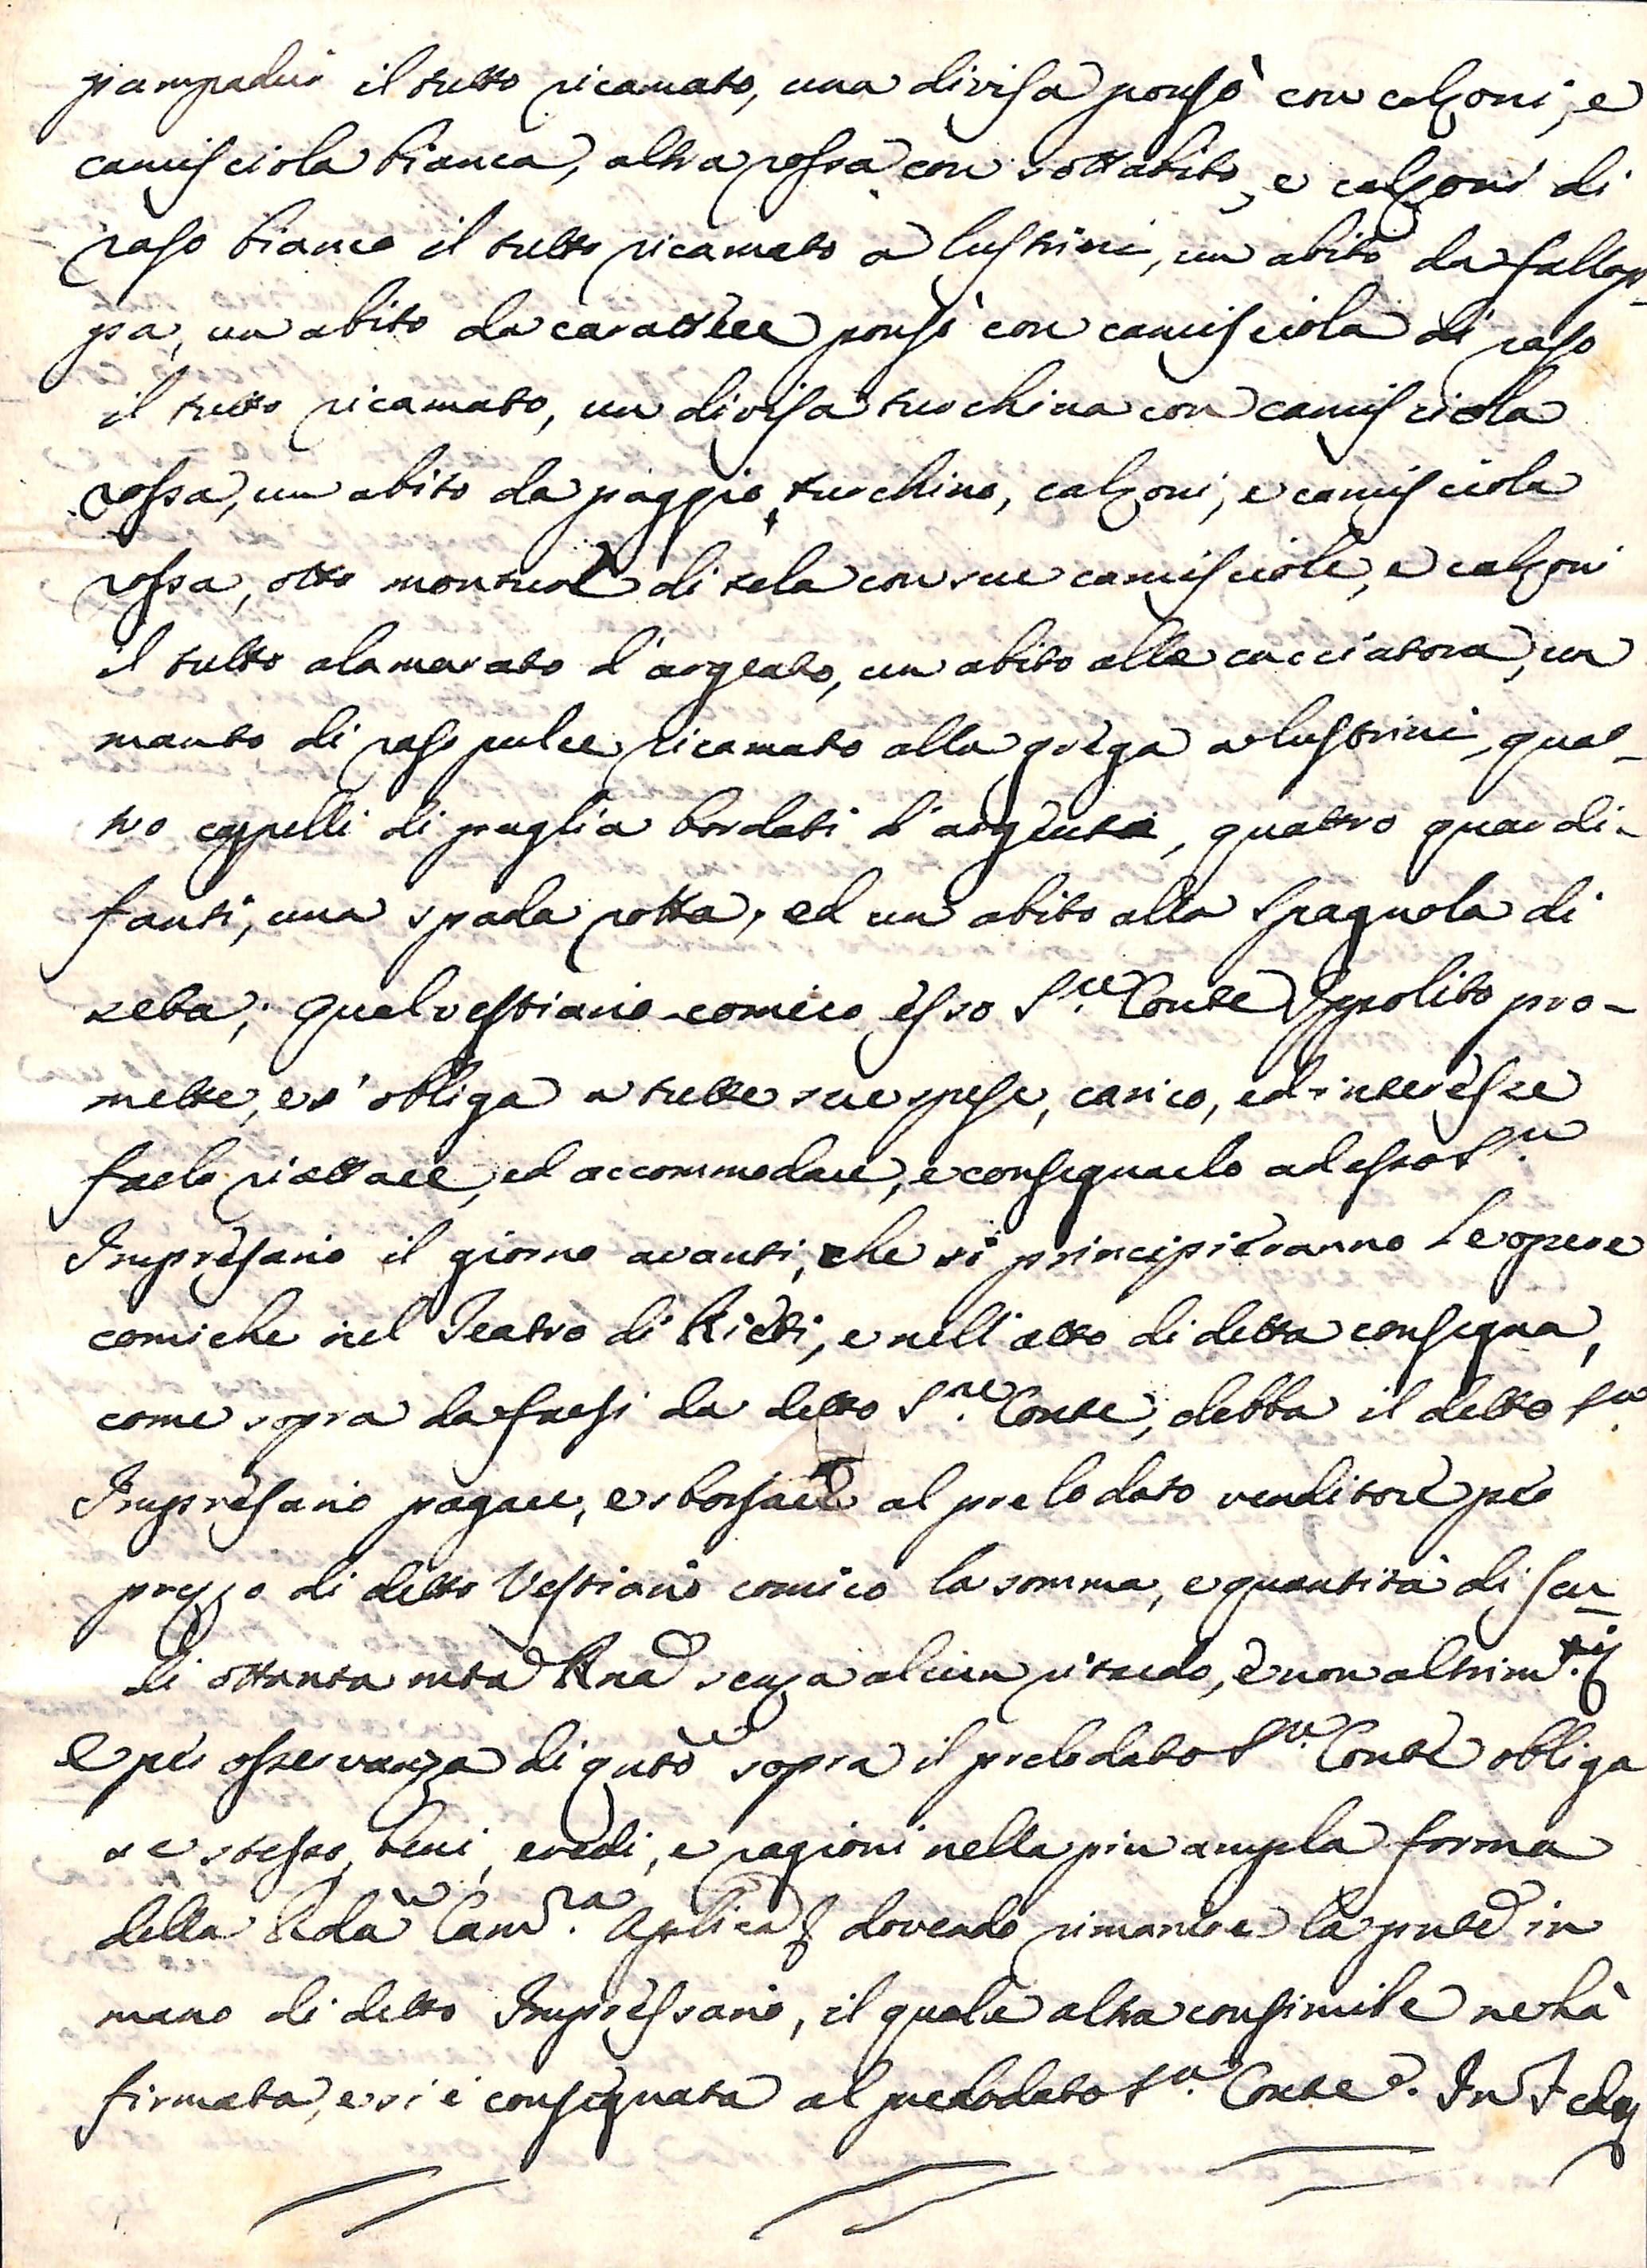 pampadur il tutto ricamato, una divisa ponsò con calzoni, e
camisciola bianca, altra rossa con sottabito, e calzoni di
raso bianco il tutto ricamato a lustrini, un abito da fallop-
pa, un abito da carattere ponsò con camisciola di raso
il tutto ricamato, un divisa turchina con camisciola
rossa, un abito da paggio turchino, calzoni, e camisciola
rossa, otto monture di tela con sue camisciole, e calzoni
il tutto alamarato d'argento, un abito alla cacciatora, un
manto di raso pulce ricamato alla grega a lustrini, quat-
tro cappelli di paglia bordati d'argento, quattro guardi-
fanti, una spada rotta, ed un abito alla Spagnola di
seta; qual vestiario comico esso S.re Conte Ippolito pro-
mette, e s'obliga a tutte sue spese, carico, ed interesse
farlo riattare, ed accommodare, e consegnarlo ad esso S.re
Impresario il giorno avanti, che si principieranno le opere
comiche nel Teatro di Rieti, e nell'atto di detta consegna,
come sopra da farsi da detto S.re Conte, debba il detto S.re
Impresario pagare, e sborsare al prelodato venditore per
prezzo di detto Vestiario comico la somma, e quantità di scu-
di ottanta mta Rna senza alcun ritardo, e non altrim.ti
e per osservanza di qnto sopra il prelodato S.re Conte obliga
se stesso, beni, eredi, e ragioni nella più ampla forma
della Rda Cam.ra Aplica dovendo rimanere la pnte in
mano di detto Impressario, il quale altra consimile ne hà
firmata, e si è consegnata al prelodato S.re Conte. In Fede